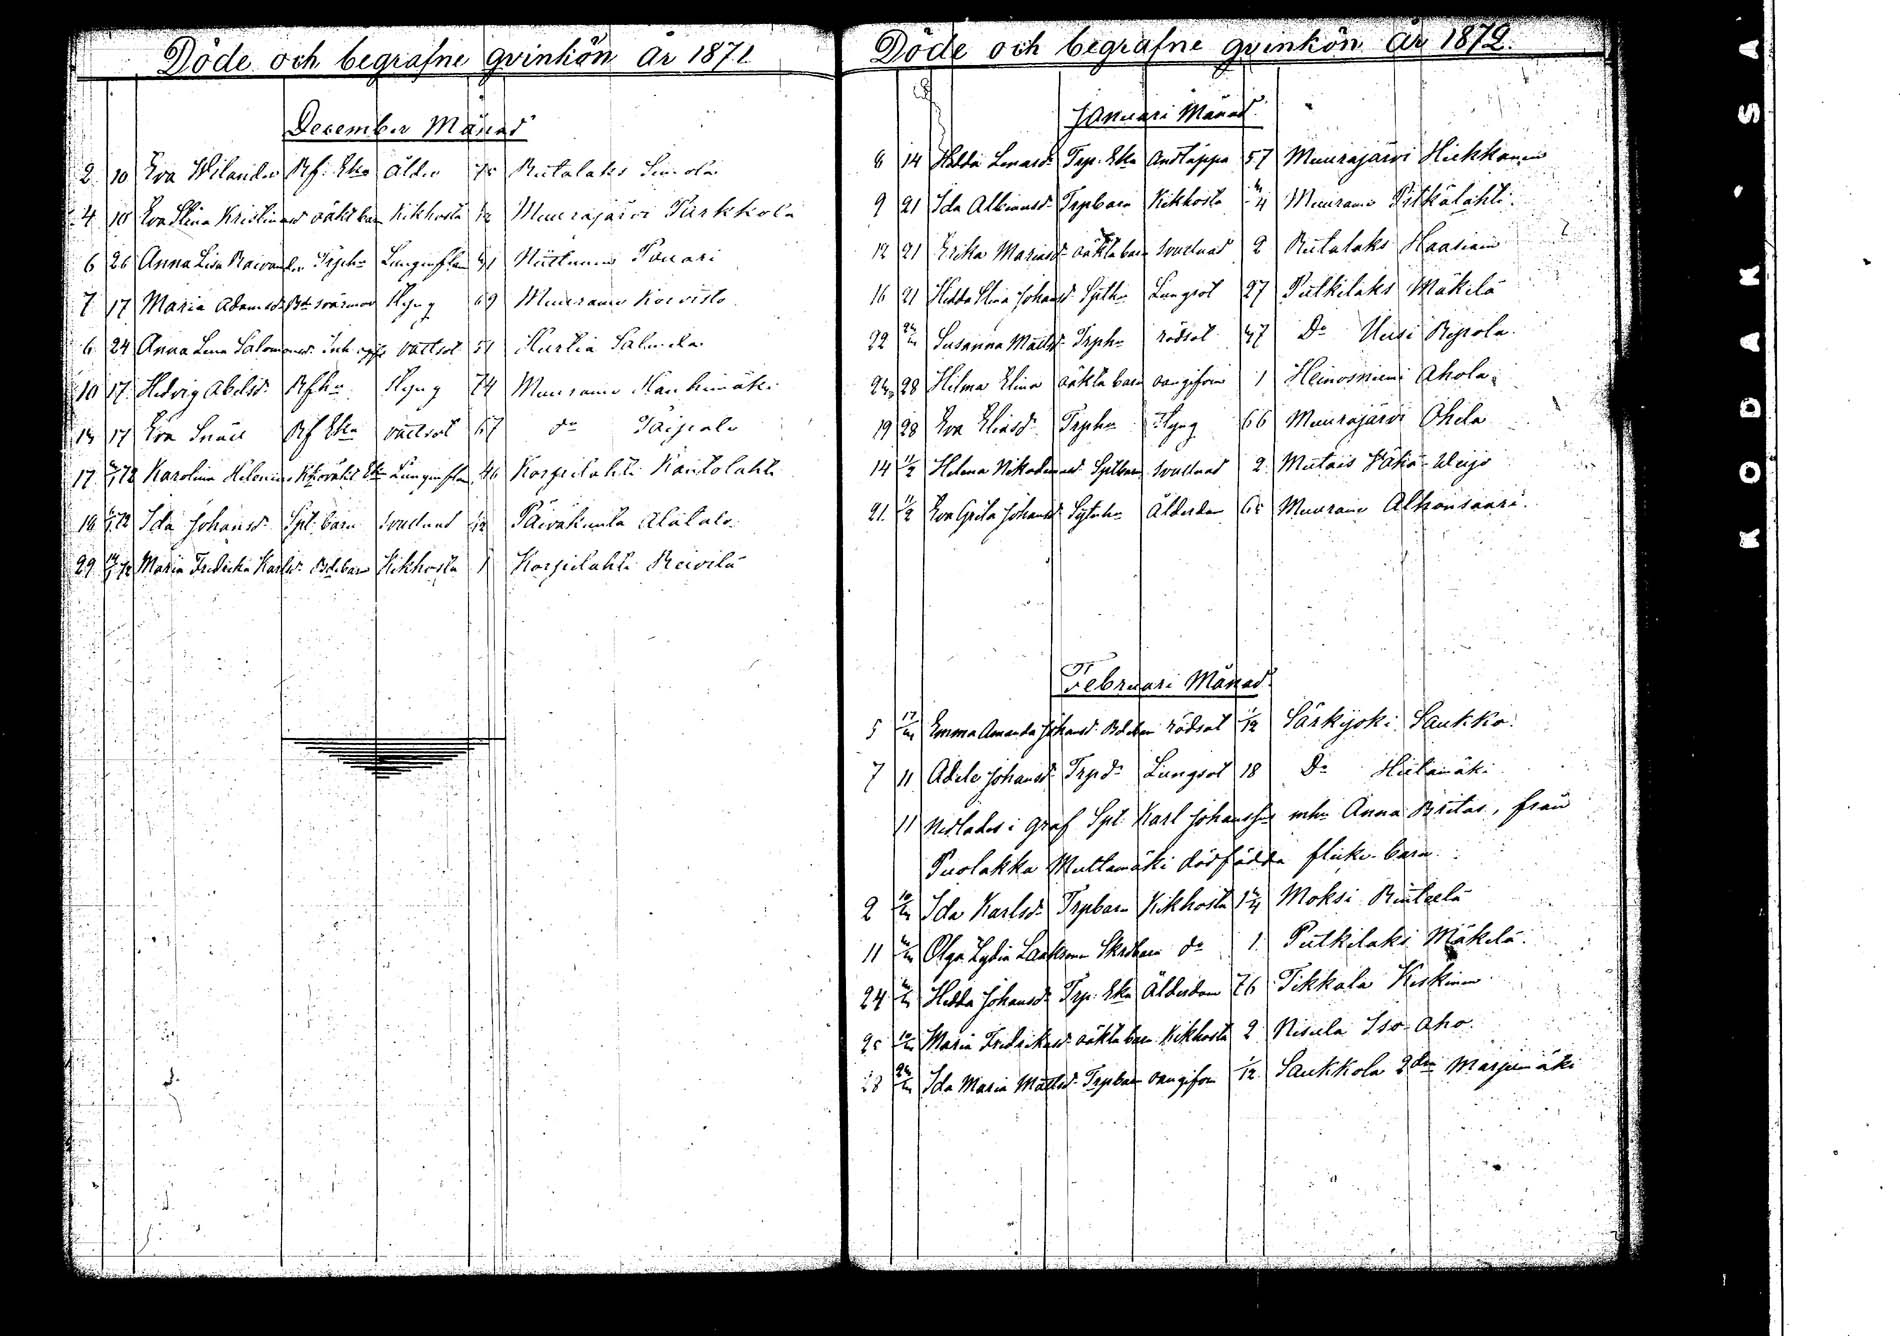 Döde och begrafne qvinkön År 1871
December Månad
2 10 Eva Wilander Bf. Eka ålder 75 Rutalaks Simola
4 10 Eva Stina Kristinasd oäkt barn Kikhosta 1/12 Muurajärvi Parkkola
6 26 Anna Lisa Trphu Lunginflam 41
7 17 Maria Adamsd Bds svärmor Styng 69 Muurame Koivisto
6 24 Anna Lena Salomonsd Inh vattsot 51 Kurkia Salmela
10 17 Hedvig Abelsd Bfhu Styng 74 Muurame Kauhimäki
14 17 Eva Snäll Bf Eka vattsot 67 do Taipale
17 172 Karolina Helenius Eka Lunginflam 46 Korpilahti Rantolahti
18 172 Ida Johansd Spt. barn svullnad 1/12 Päiväkunta Alatalo
29 14/1 72 Maria Fredrika Karlsd Bdebarn Kikhosta 1 Korpilahti Reivilä
Döde och begrafne qvinkön år 1872.
Januari Månad.
8 14 Hedda Lenasd Trp. Eka Andtäppa 57 Muurajärvi Hiekkanen
9 21 Ida Albinusd Trpbarn Kikhosta Muurame Pitkälahti
12 21 Erika Mariasd oäkta barn svullnad 2 Rutalaks Haasiain
16 21 Hedda Stina Johansd Spthu Lungsot 27 Putkilaks Mäkelä
22 Susanna Mattsd Trphu rödsot 47 Do Uusi Repola
24 28 Hilma Elina oäkta barn oangifven 1 Heinosniemi Ahola
19 28 Eva Eliasd Trphu Styng 66 Muurajärvi Ohela
14 11/2 Helena Nikodemusd Sptbarn svullnad 2 Mutais
21. 11/2 Eva Greta Johansd Sytnhu Ålderdom 65 Muurame Alhonsaari
Februari Månad.
5 17/ Emma Amanda Johansd Bdebarn rödsot 1/12 Särkijoki Saukko
7 11 Adele Johansd Trpdr Lungsot 18 Do Hietamäki
11 Nedlades i graf Spt Karl Johanss mhu Anna Britas, från
Puolakka Multamäki dödfödda flicke barn
2 Ida Karlsd Trpbarn Kikhosta Moksi Rinteelä
11 Olga Lydia Laaksonen Skrdbarn do 1 Putkilaks Mäkelä.
24 Hedda Johansd Trp. Eka Ålderdom 76 Tikkala Keskinen
25 Maria Fredrikasd oäkta barn Kikhosta 2 Nisula Iso-aho.
28 Ida Maria Mattsd Trpbarn oangifven 1/12 Saukkola 2dra Marjomäki
KODAK - SA